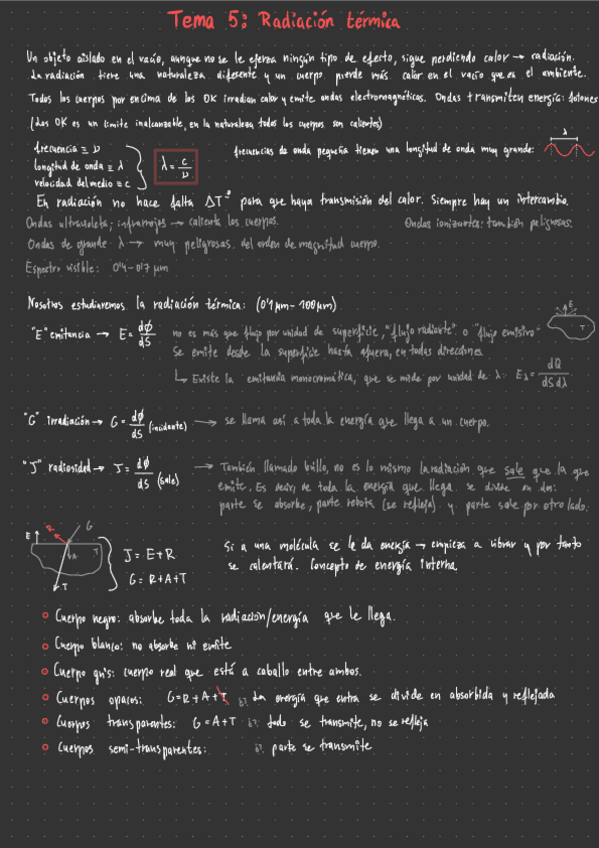 Tema 5: Radiación térmica
Un objeto aislado en el vacío, aunque no se le ejerza ningún tipo de efecto, sigue perdiendo calor → radiación.
La radiación tiene una naturaleza diferente y un cuerpo pierde más calor en el vacío que en el ambiente.
Todos los cuerpos por encima de los 0K irradian calor y emite ondas electromagnéticas. Ondas transmiten energía: fotones
(Los 0K es un límite inalcanzable, en la naturaleza todos los cuerpos son calientes)
frecuencia ≡ ν
longitud de onda ≡ λ
velocidad del medio ≡ c
λ = c/ν
frecuencias de onda pequeña tienen una longitud de onda muy grande:
λ
En radiación no hace falta ΔT para que haya transmisión del calor. Siempre hay un intercambio.
Ondas ultravioleta; infrarrojos → calienta los cuerpos.
Ondas ionizantes: también peligrosas.
Ondas de grande λ → muy peligrosas. del orden de magnitud cuerpo.
Espectro visible: 0'4-0'7 μm
Nosotros estudiaremos la radiación térmica: (0'1 μm - 100 μm)
"E" emitancia → E = dϕ/dS no es más que flujo por unidad de superficie, "flujo radiante" o "flujo emisivo"
Se emite desde la superficie hasta afuera, en todas direcciones
E
T
↳ Existe la emitancia monocromática, que se mide por unidad de λ: Eλ = dQ/dS dλ
"G" irradiación → G = dϕ/dS (incidente) → se llama así a toda la energía que llega a un cuerpo.
"J" radiosidad → J = dϕ/dS (sale) → También llamado brillo, no es lo mismo la radiación que sale que la que
emite. Es decir, de toda la energía que llega se divide en dos:
parte se absorbe, parte rebota (se refleja) y parte sale por otro lado.
E
R
G
A
T
T
J = E+R
G = R+A+T
Si a una molécula se le da energía → empieza a vibrar y por tanto
se calentará. Concepto de energía interna.
Cuerpo negro: absorbe toda la radiación/energía que le llega.
Cuerpo blanco: no absorbe ni emite
Cuerpo gris: cuerpo real que está a caballo entre ambos.
Cuerpos opacos: G=R+A+T La energía que entra se divide en absorbida y reflejada
Cuerpos transparentes: G=A+T todo se transmite, no se refleja
Cuerpos semi-transparentes: parte se transmite